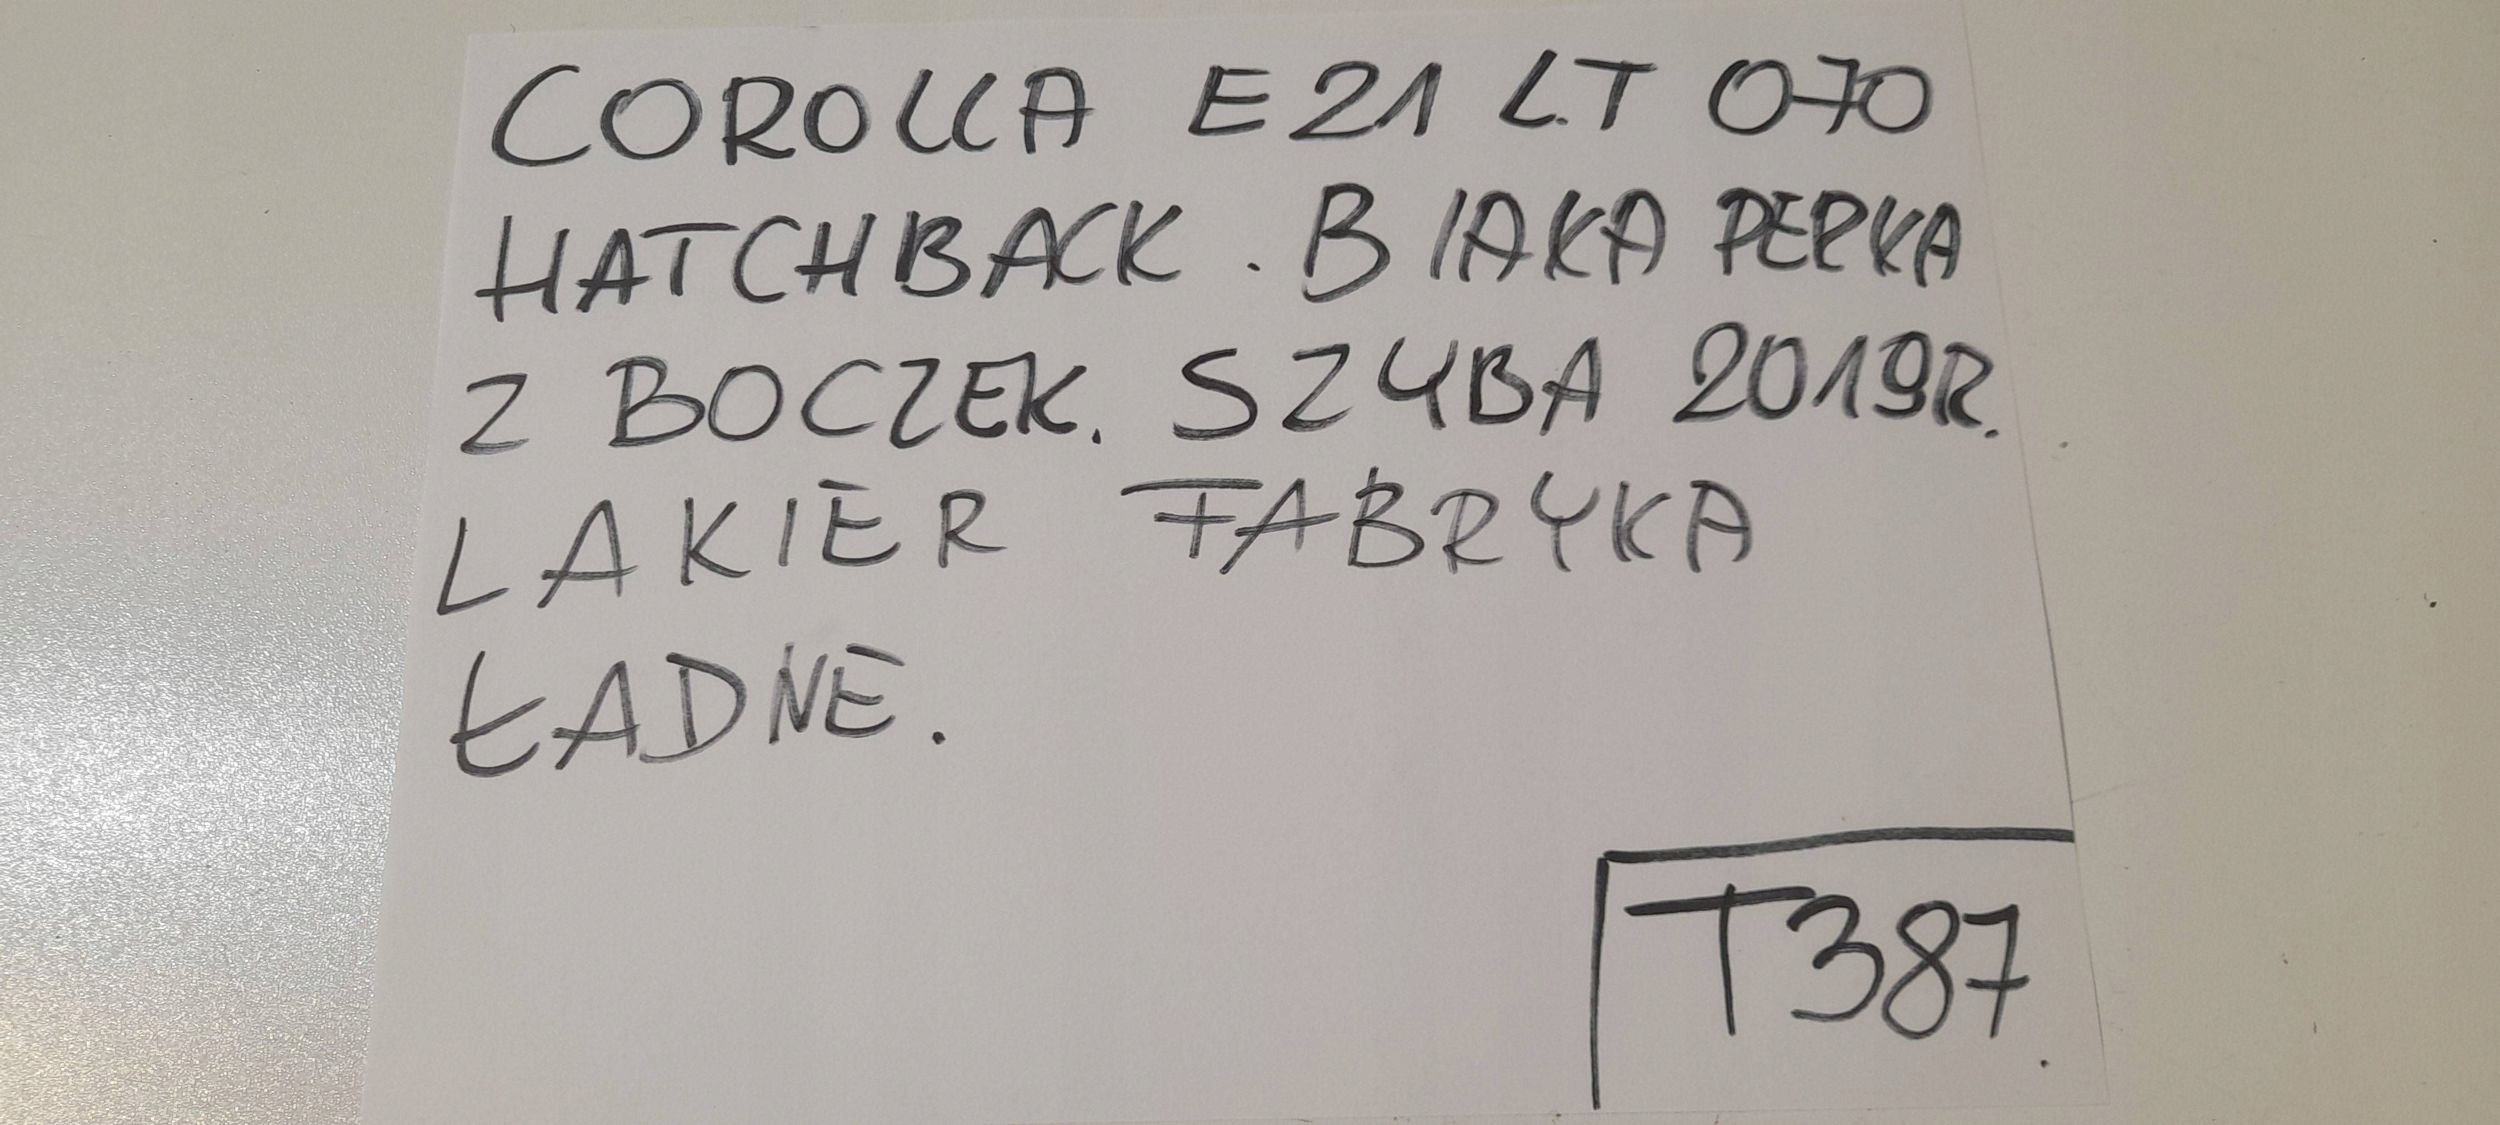 COROLLA E21 LT 070
HATCHBACK. BIAKA PEPKA
Z BOCZEK. SZYBA 2019R.
LAKIER FABRYKA
ŁADNE.
T387.